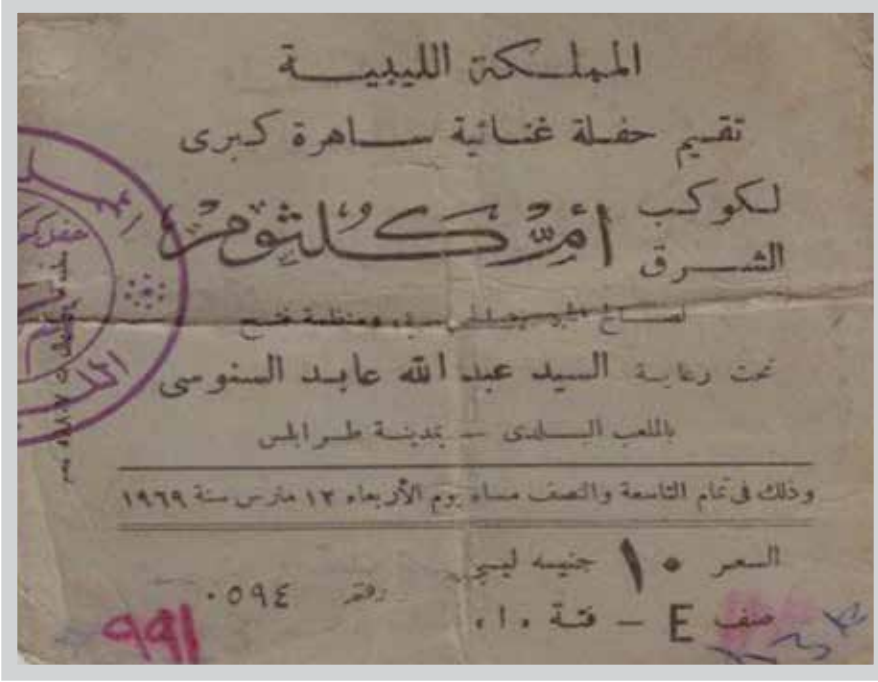 المملكة الليبية
تقيم حفلة غنائية ساهرة كبرى
لكوكب الشرق
أُمِّ كُلثوم
لصالح ومنظمة فتح
تحت رعاية السيد عبد الله عابد السنوسى
بالملعب البلدى – بمدينة طرابلس
وذلك فى تمام التاسعة والنصف مساء يوم الأربعاء ١٢ مارس سنة ١٩٦٩
السعر ١٠ جنيه ليبى
رقم ٠٥٩٤
صنف E – فئة ١٠
٩٩١